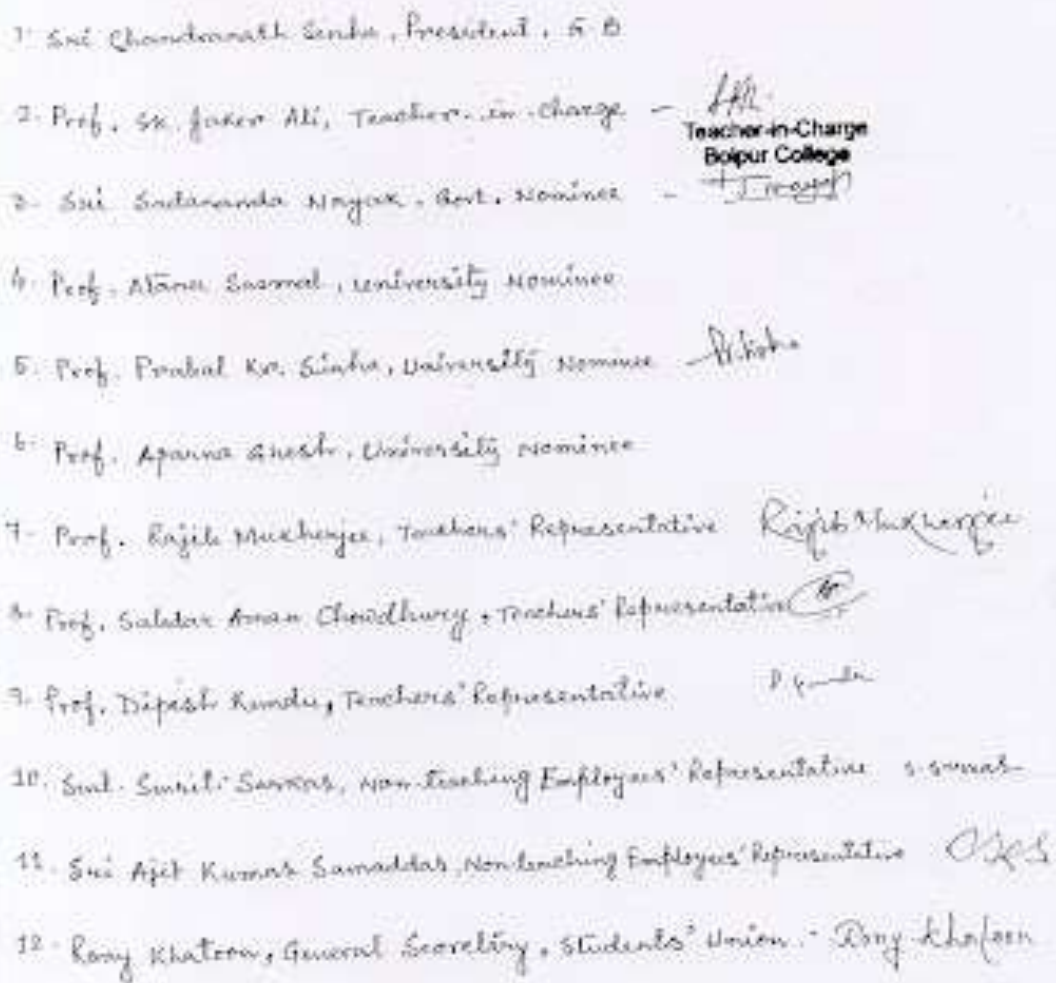 1. Sri Chandranath Sinha, President, G.B
2. Prof. Sk. Jaker Ali, Teacher-in-Charge -
Teacher-in-Charge
Bolpur College
3. Sri Sadananda Nayak, Govt. Nominee -
4. Prof. Sasmal, University Nominee
5. Prof. Prabal Kr. Sinha, University Nominee
6. Prof. Aparna Ghosh, University Nominee
7. Prof. Rajib Mukherjee, Teachers' Representative Rajib Mukherjee
8. Prof. Salatar Aman Chowdhury, Teachers' Representative
9. Prof. Dipesh Kundu, Teachers' Representative
10. Smt. Suniti Sarkar, Non-teaching Employees' Representative
11. Sri Ajit Kumar Samaddar, Nonteaching Employees' Representative
12. Rony Khatoon, General Secretary, Students' Union. - Rony Khatoon